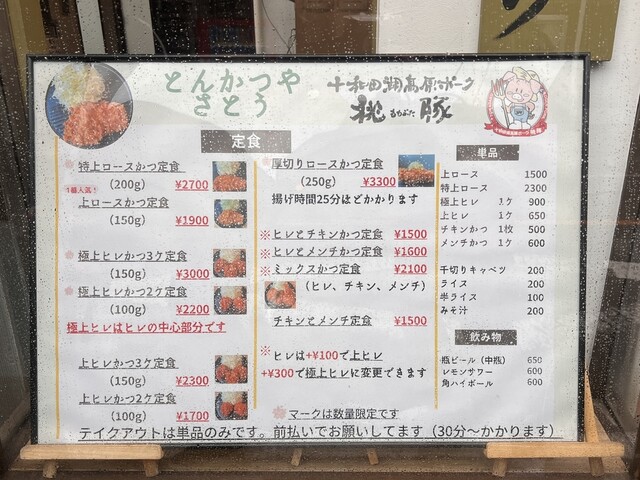 とんかつや
さとう
十和田湖高原ポーク
桃豚
ももぶた
定食
特上ロースかつ定食
(200g) ¥2700
1番人気!
上ロースかつ定食
(150g) ¥1900
極上ヒレかつ3ケ定食
(150g) ¥3000
極上ヒレかつ2ケ定食
(100g) ¥2200
極上ヒレはヒレの中心部分です
上ヒレかつ3ケ定食
(150g) ¥2300
上ヒレかつ2ケ定食
(100g) ¥1700
厚切りロースかつ定食
(250g) ¥3300
揚げ時間25分ほどかかります
※ヒレとチキンかつ定食 ¥1500
※ヒレとメンチかつ定食 ¥1600
※ミックスかつ定食 ¥2100
(ヒレ、チキン、メンチ)
チキンとメンチ定食 ¥1500
※ヒレは+¥100で上ヒレ
+¥300で極上ヒレに変更できます
マークは数量限定です
単品
上ロース 1500
特上ロース 2300
極上ヒレ 1ケ 900
上ヒレ 1ケ 650
チキンかつ 1枚 500
メンチかつ 1ケ 600
千切りキャベツ 200
ライス 200
半ライス 100
みそ汁 200
飲み物
瓶ビール(中瓶) 650
レモンサワー 600
角ハイボール 600
テイクアウトは単品のみです。前払いでお願いしてます(30分〜かかります)